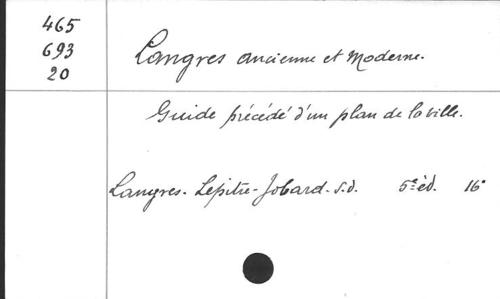 465
693
20
Langres ancienne et Moderne.
Guide précédé d'un plan de la ville.
Langres. Lepitre-Jobard. s.d. 5e éd. 16°